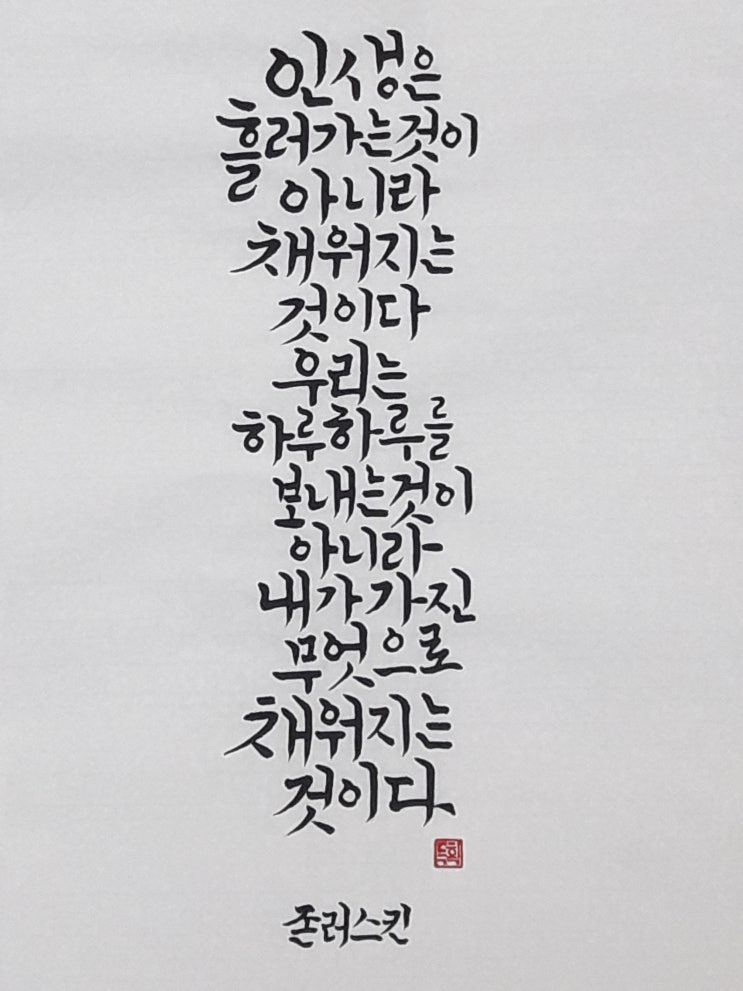 인생은
흘러가는것이
아니라
채워지는
것이다
우리는
하루하루를
보내는것이
아니라
내가 가진
무엇으로
채워지는
것이다.
존러스킨